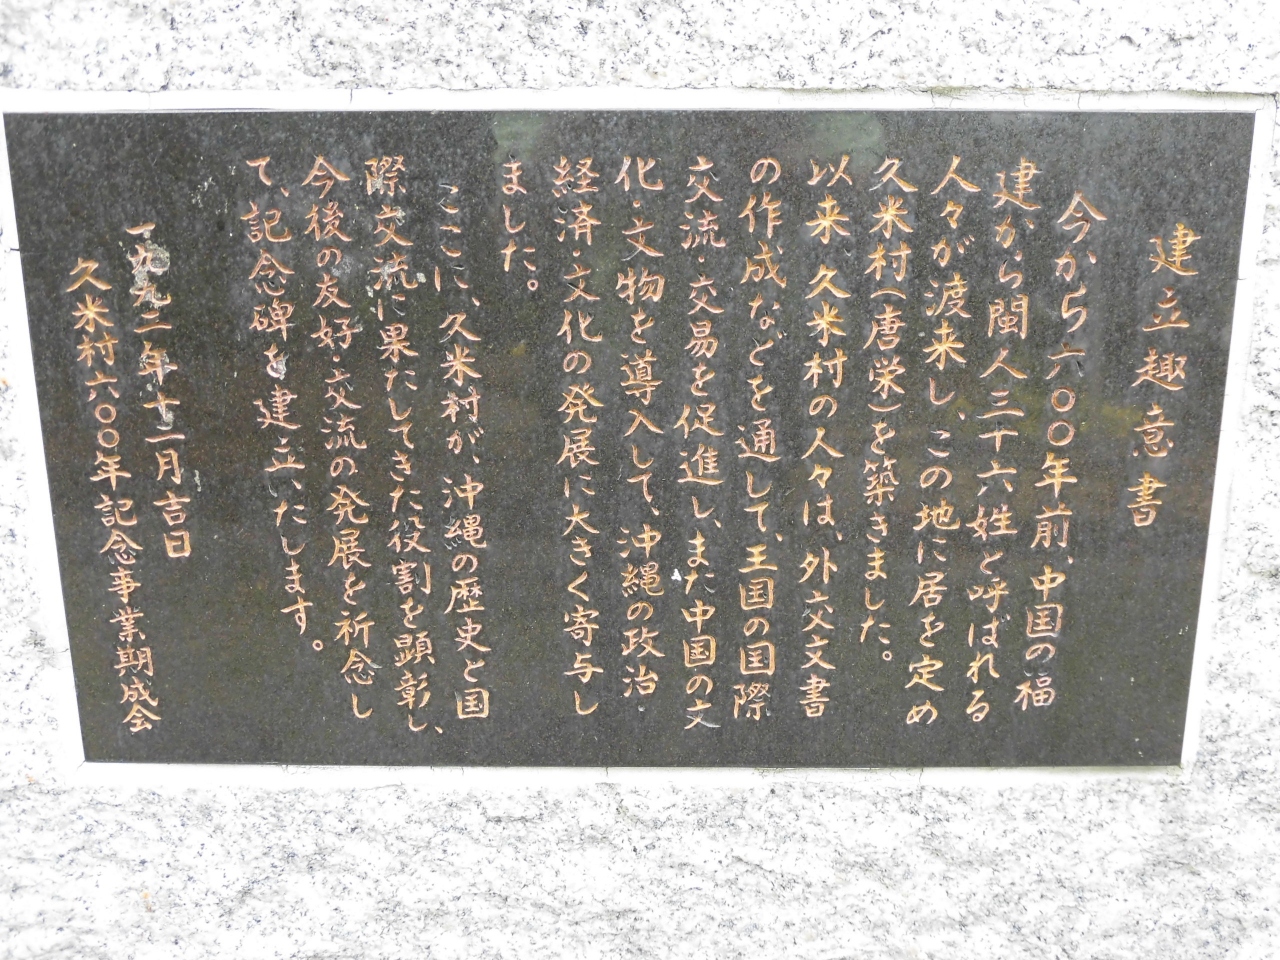 建立趣意書
今から六〇〇年前、中国の福
建から閩人三十六姓と呼ばれる
人々が渡来し、この地に居を定め
久米村(唐栄)を築きました。
以来、久米村の人々は、外交文書
の作成などを通して、王国の国際
交流・交易を促進し、また中国の文
化・文物を導入して、沖縄の政治・
経済・文化の発展に大きく寄与し
ました。
ここに、久米村が、沖縄の歴史と国
際交流に果たしてきた役割を顕彰し、
今後の友好・交流の発展を祈念し
て、記念碑を建立いたします。
一九九二年十一月吉日
久米村六〇〇年記念事業期成会